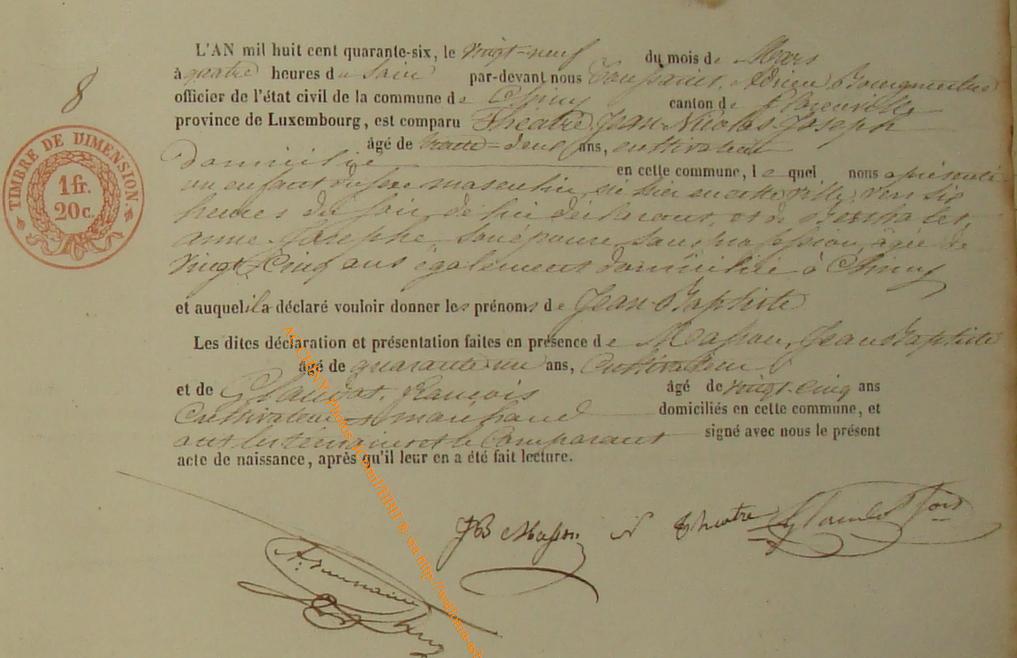 8
TIMBRE DE DIMENSION
1 fr.
20 c.
L'AN mil huit cent quarante-six, le vingt-neuf du mois de Mars
à quatre heures du soir par-devant nous Bourgmestre
officier de l'état civil de la commune de Chiny canton de Florenville
province de Luxembourg, est comparu Theatre, Jean Nicolas Joseph
âgé de trente-deux ans, cultivateur
domicilié en cette commune, le quel nous a présenté
un enfant du sexe masculin, né hier en cette ville, vers six
heures du soir, de lui déclarant, et de
anne Josephe, son épouse, sans profession, âgée de
vingt cinq ans également domiciliée à Chiny
et auquel il a déclaré vouloir donner les prénoms de Jean-Baptiste
Les dites déclaration et présentation faites en présence de Masson, Jean Baptiste
âgé de quarante un ans, Cultivateur
et de François âgé de vingt-cinq ans
Cultivateur domiciliés en cette commune, et
ont les temoins et le Comparant signé avec nous le présent
acte de naissance, après qu'il leur en a été fait lecture.
JB Masson N Theatre